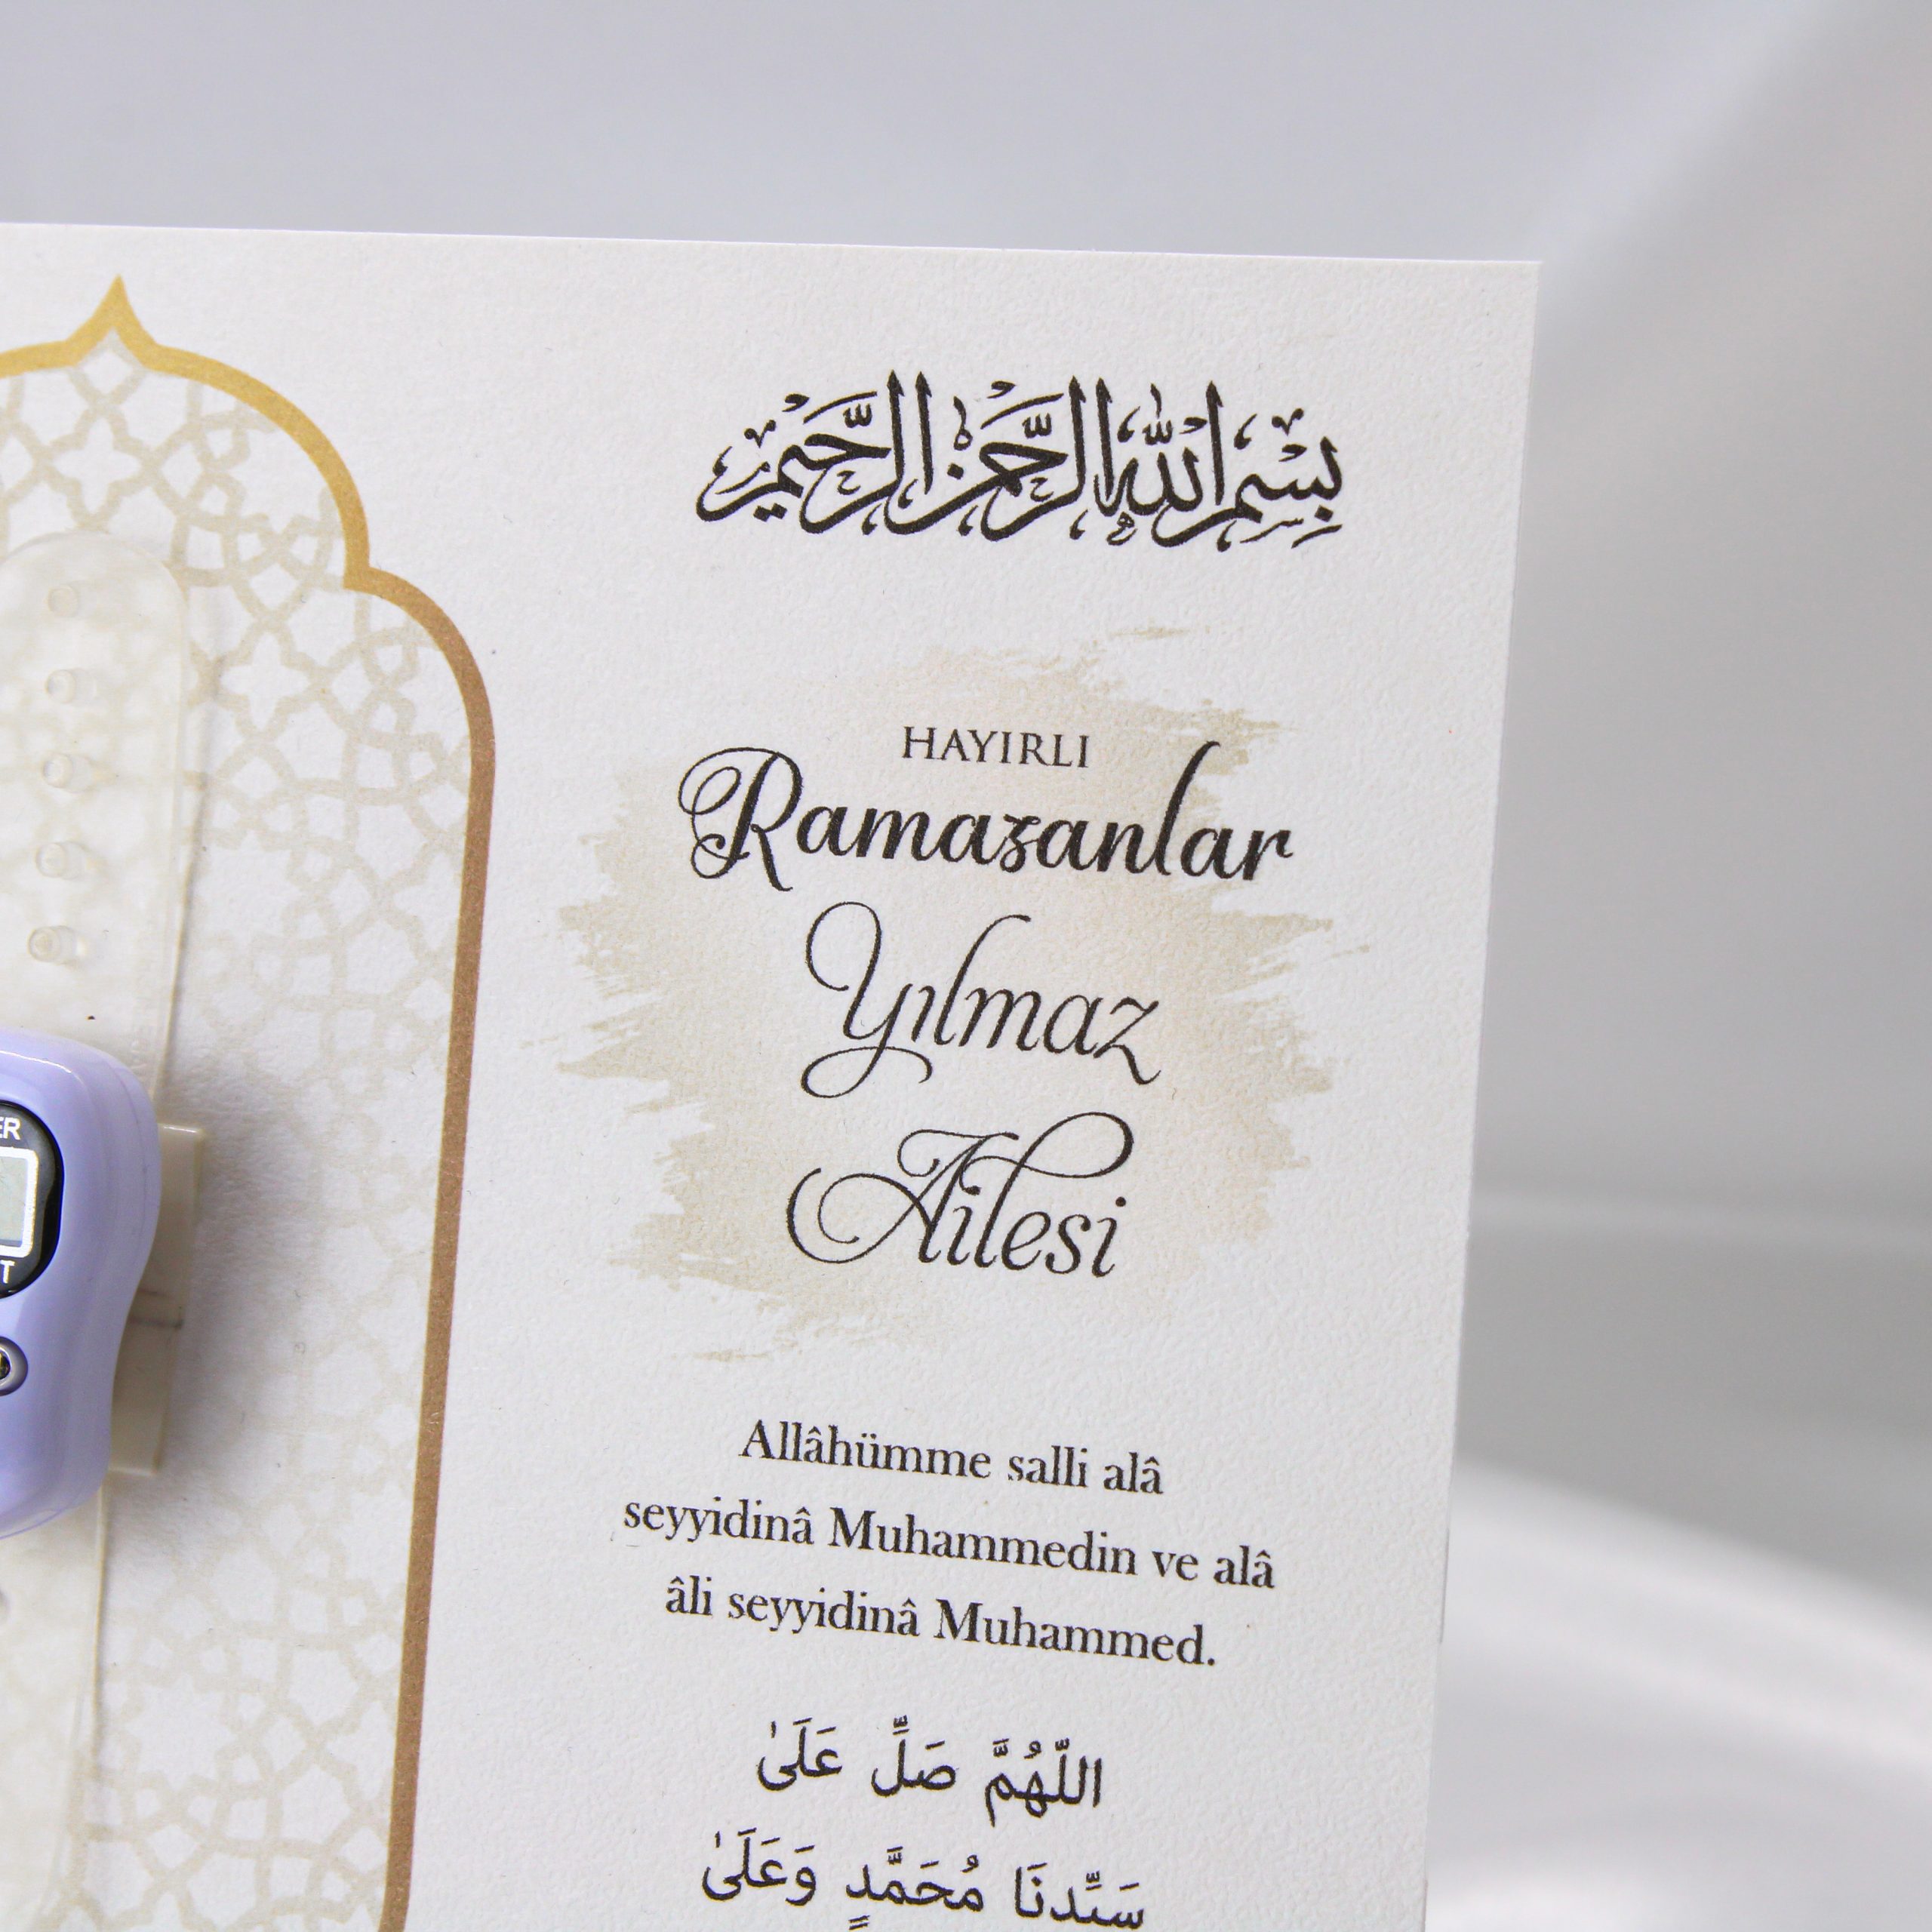 بِسْمِ اللّٰهِ الرَّحْمٰنِ الرَّحٖيمِ
HAYIRLI
Ramazanlar
Yılmaz
Ailesi
Allâhümme salli alâ
seyyidinâ Muhammedin ve alâ
âli seyyidinâ Muhammed.
اللّهُمَّ صَلِّ عَلَىٰ
سَيِّدِنَا مُحَمَّدٍ وَعَلَىٰ